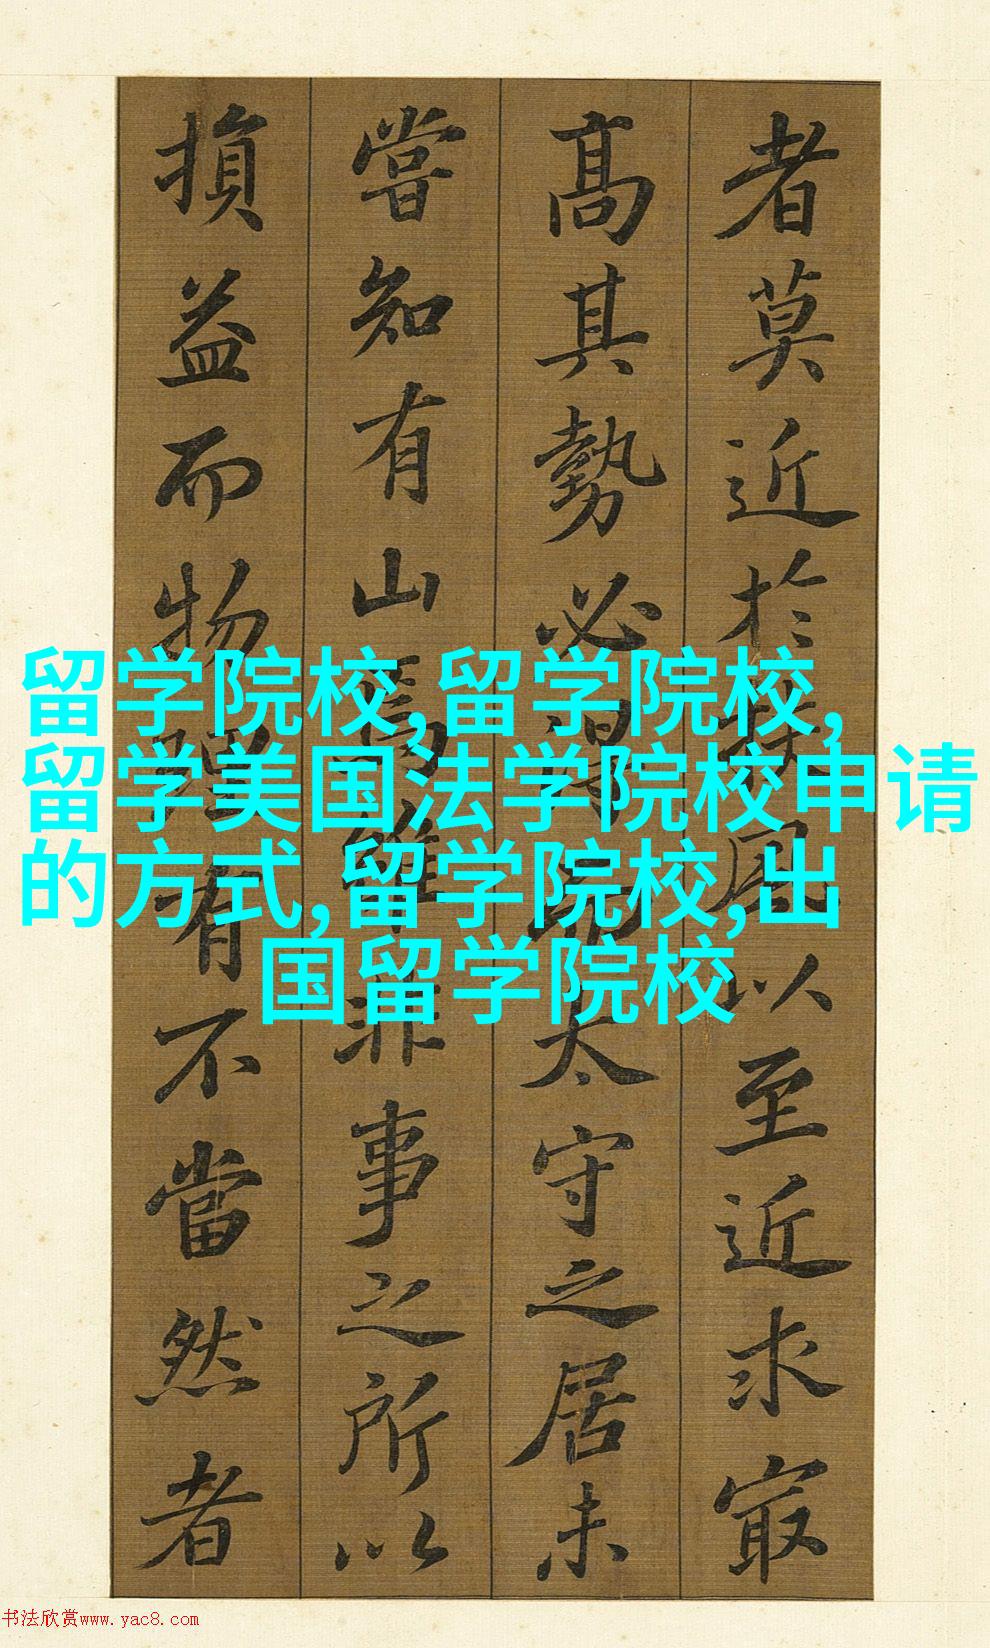 者莫近於扶風以至近求冣
髙其勢必得而太守之居未
嘗知有山焉雖非事之所以
損益而物理有不當然者
留学院校,留学院校,
留学美国法学院校申请
的方式,留学院校,出
国留学院校
书法欣赏www.yac8.com